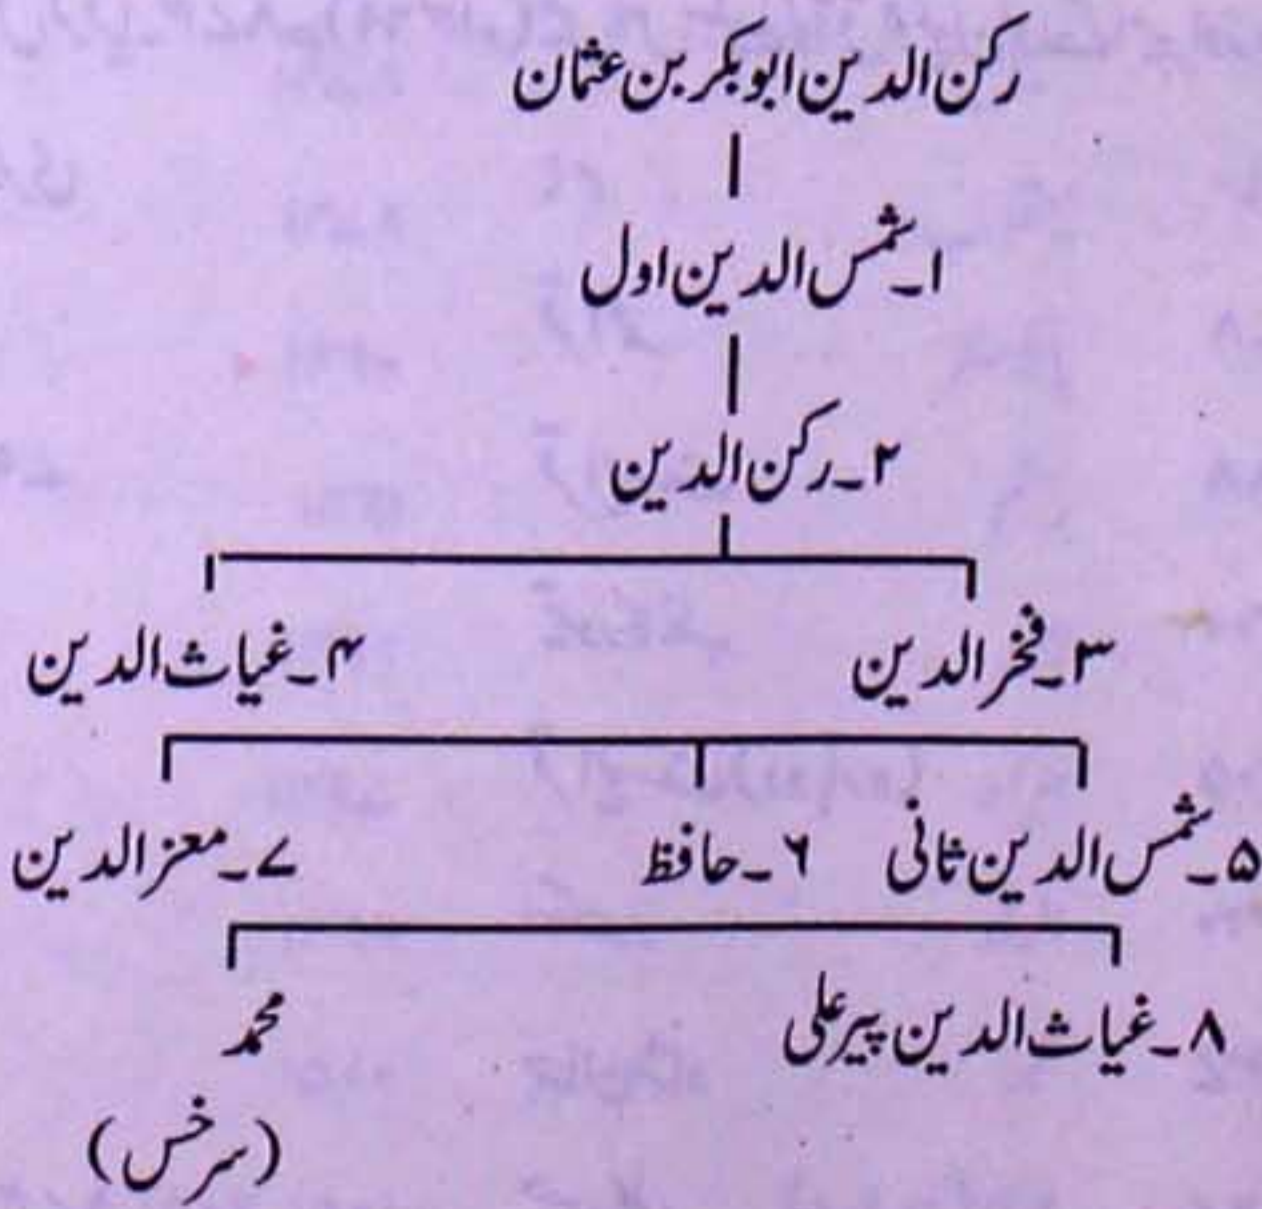 رکن الدین ابوبکر بن عثمان
۱۔شمس الدین اول
۲۔رکن الدین
۳۔فخر الدین
۴۔غیاث الدین
۵۔شمس الدین ثانی
۶۔حافظ
۷۔معز الدین
۸۔غیاث الدین پیر علی
محمد
(سرخس)